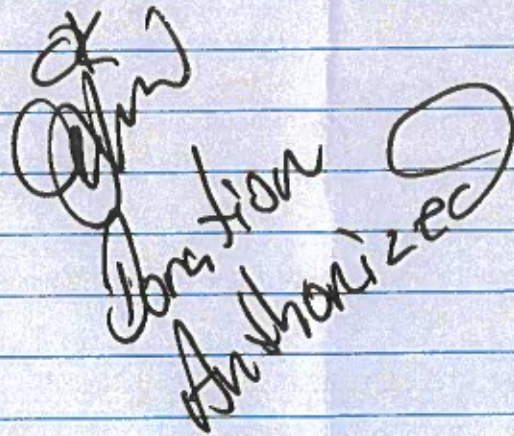 OK
Donation
Authorized